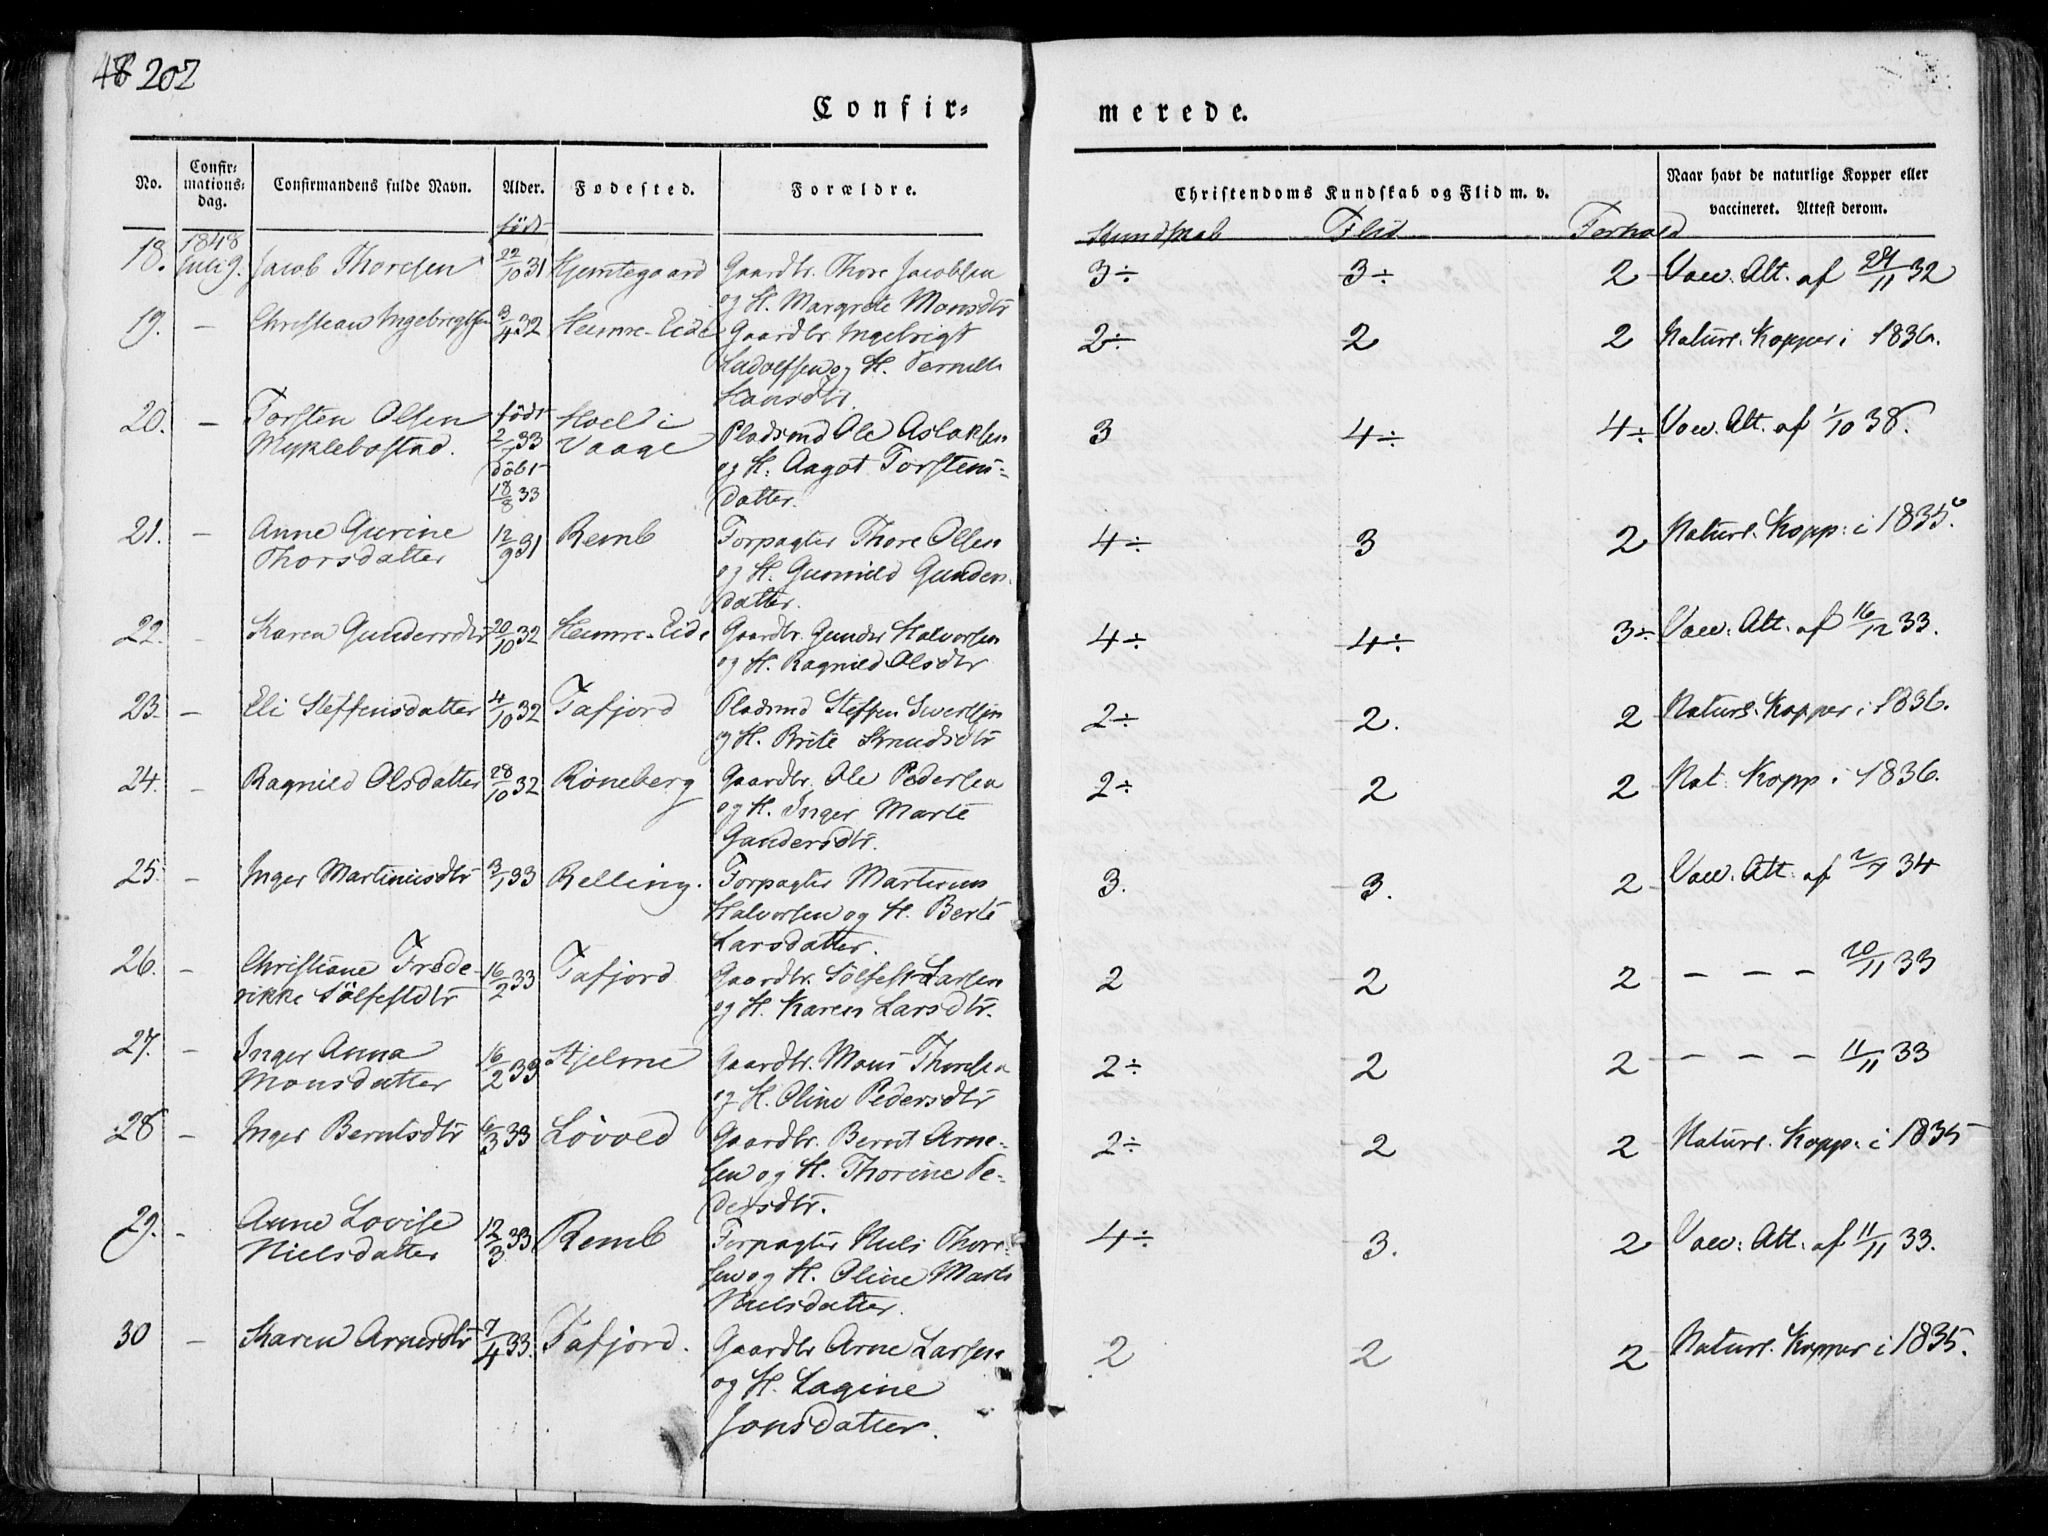 48 202
Confir=
merede.
No.
Confir=
mations=
dag.
Confirmandens fulde Navn.
Alder.
Fødested.
Forældre.
Christendoms Kundskab og Flid m. v.
Naar havt de naturlige Kopper eller
vaccineret. Attest derom.
født
Kundskab Flid Forhold
18. 1848 Juli 9. Jacob Thoresen 22/10 31 Gaardbr. Thore Jacobsen 3÷ 3÷ 2 Vacc. Att. af 29/11 32
og H. Margrete Monsdtr
19. — Christian Ingebrigtsen 3/4 32 Heimre-Eide Gaardbr. Ingebrigt 2÷ 2 2 Naturl. Kopper i 1836.
Ladolfsen og H. Pernille
Hansdtr.
20. — Torsten Olsen født Hoel i 3 4÷ 4÷ Vacc. Att. af 1/10 38.
Myklebostad. 2/7 33 Vaage Pladsmd Ole Aslaksen
døbt og H. Aagot Torstens-
18/8 33 datter.
21. — Anne Gurine 12/9 31 Remb Forpagter Thore Olsen 4÷ 3 2 Naturl. Kopp: i 1835.
Thorsdatter og H. Gunnild Gunders-
datter.
22. — Karen Gundersdtr 20/10 32 Heimre-Eide Gaardbr. Gunder Halvorsen 4÷ 4÷ 3÷ Vacc. Att. af 16/12 33.
og H. Ragnild Olsdtr
23. — Eli Steffensdatter 4/10 32 Tafjord Pladsmd Steffen Sivertsen 2÷ 2. 2 Naturl. Kopper i 1836.
og H. Brite Knudsdtr
24. — Ragnild Olsdatter 28/10 32 Röneberg Gaardbr. Ole Pedersen 2÷ 2 2 Nat. Kopp i 1836.
og H. Inger Marte
Gundersdtr.
25. — Inger Martinusdtr 3/1 33 Relling. Forpagter Martinus 3. 3. 2 Vacc. Att. af 2/7 34
Halvorsen og H. Berte
Larsdatter.
26. — Christiane Frede- 16/2 33 Tafjord Gaardbr. Sölfest Larsen 2 2 2 — — — 20/11 33
rikke Sölfestdtr og H. Karen Larsdtr.
27. — Inger Anna 16/2 33 Stjelme Gaardbr. Mons Thoresen 2÷ 2 2 — — — 11/11 33
Monsdatter og H. Oline Pedersdtr
28 — Inger Berntsdtr 6/3 33 Lövold Gaardbr. Bernt Arne- 2÷ 2 2 Naturl. Kopp: i 1835
sen og H. Thorine Pe-
dersdtr.
29. — Anne Lovise 12/3 33 Remb Forpagter Niels Thore- 4÷ 3. 2 Vacc: Att. af 11/11 33.
Nielsdatter sen og H. Oline Marte
Nielsdatter.
30 — Karen Arnesdtr 7/4 33. Tafjord. Gaardbr Arne Larsen 2 2 2 Naturl. Kopper i 1835.
og H. Lagine
Jonsdatter.